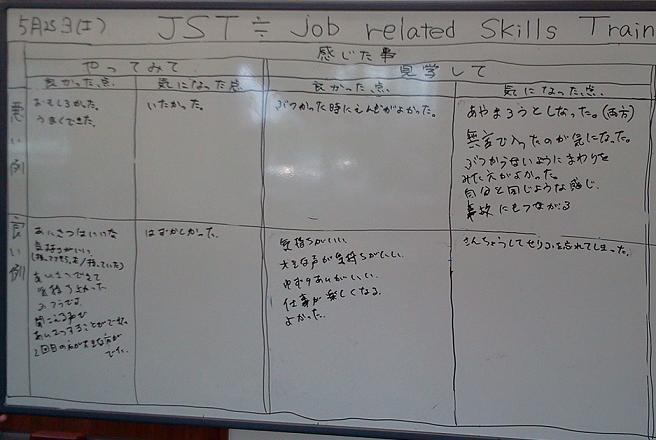 5月25日(土) JST≒ Job related Skills Train
感じた事
やってみて 見学して
良かった点 気になった点 良かった点 気になった点
悪い例
おもしろかった。
うまくできた。
いたかった。
ぶつかった時にえんぎがよかった。
あやまろうとしなった。(両方)
無言で入ったのが気になった。
ぶつからないようにまわりを
みた方がよかった。
自分と同じような感じ
事故にもつながる
良い例
あいさつはいいな
気持ちがいい
あいさつできて
気持ちよかった
ふつうです。
聞こえる声で
あいさつすることができた。
2回目の方が大きな声が
でた。
はずかしかった。
気持ちがいい。
大きな声が気持ちがいい。
ゆずりあいがいい。
仕事が楽しくなる。
よかった。
きんちょうしてせりふを忘れてしまった。